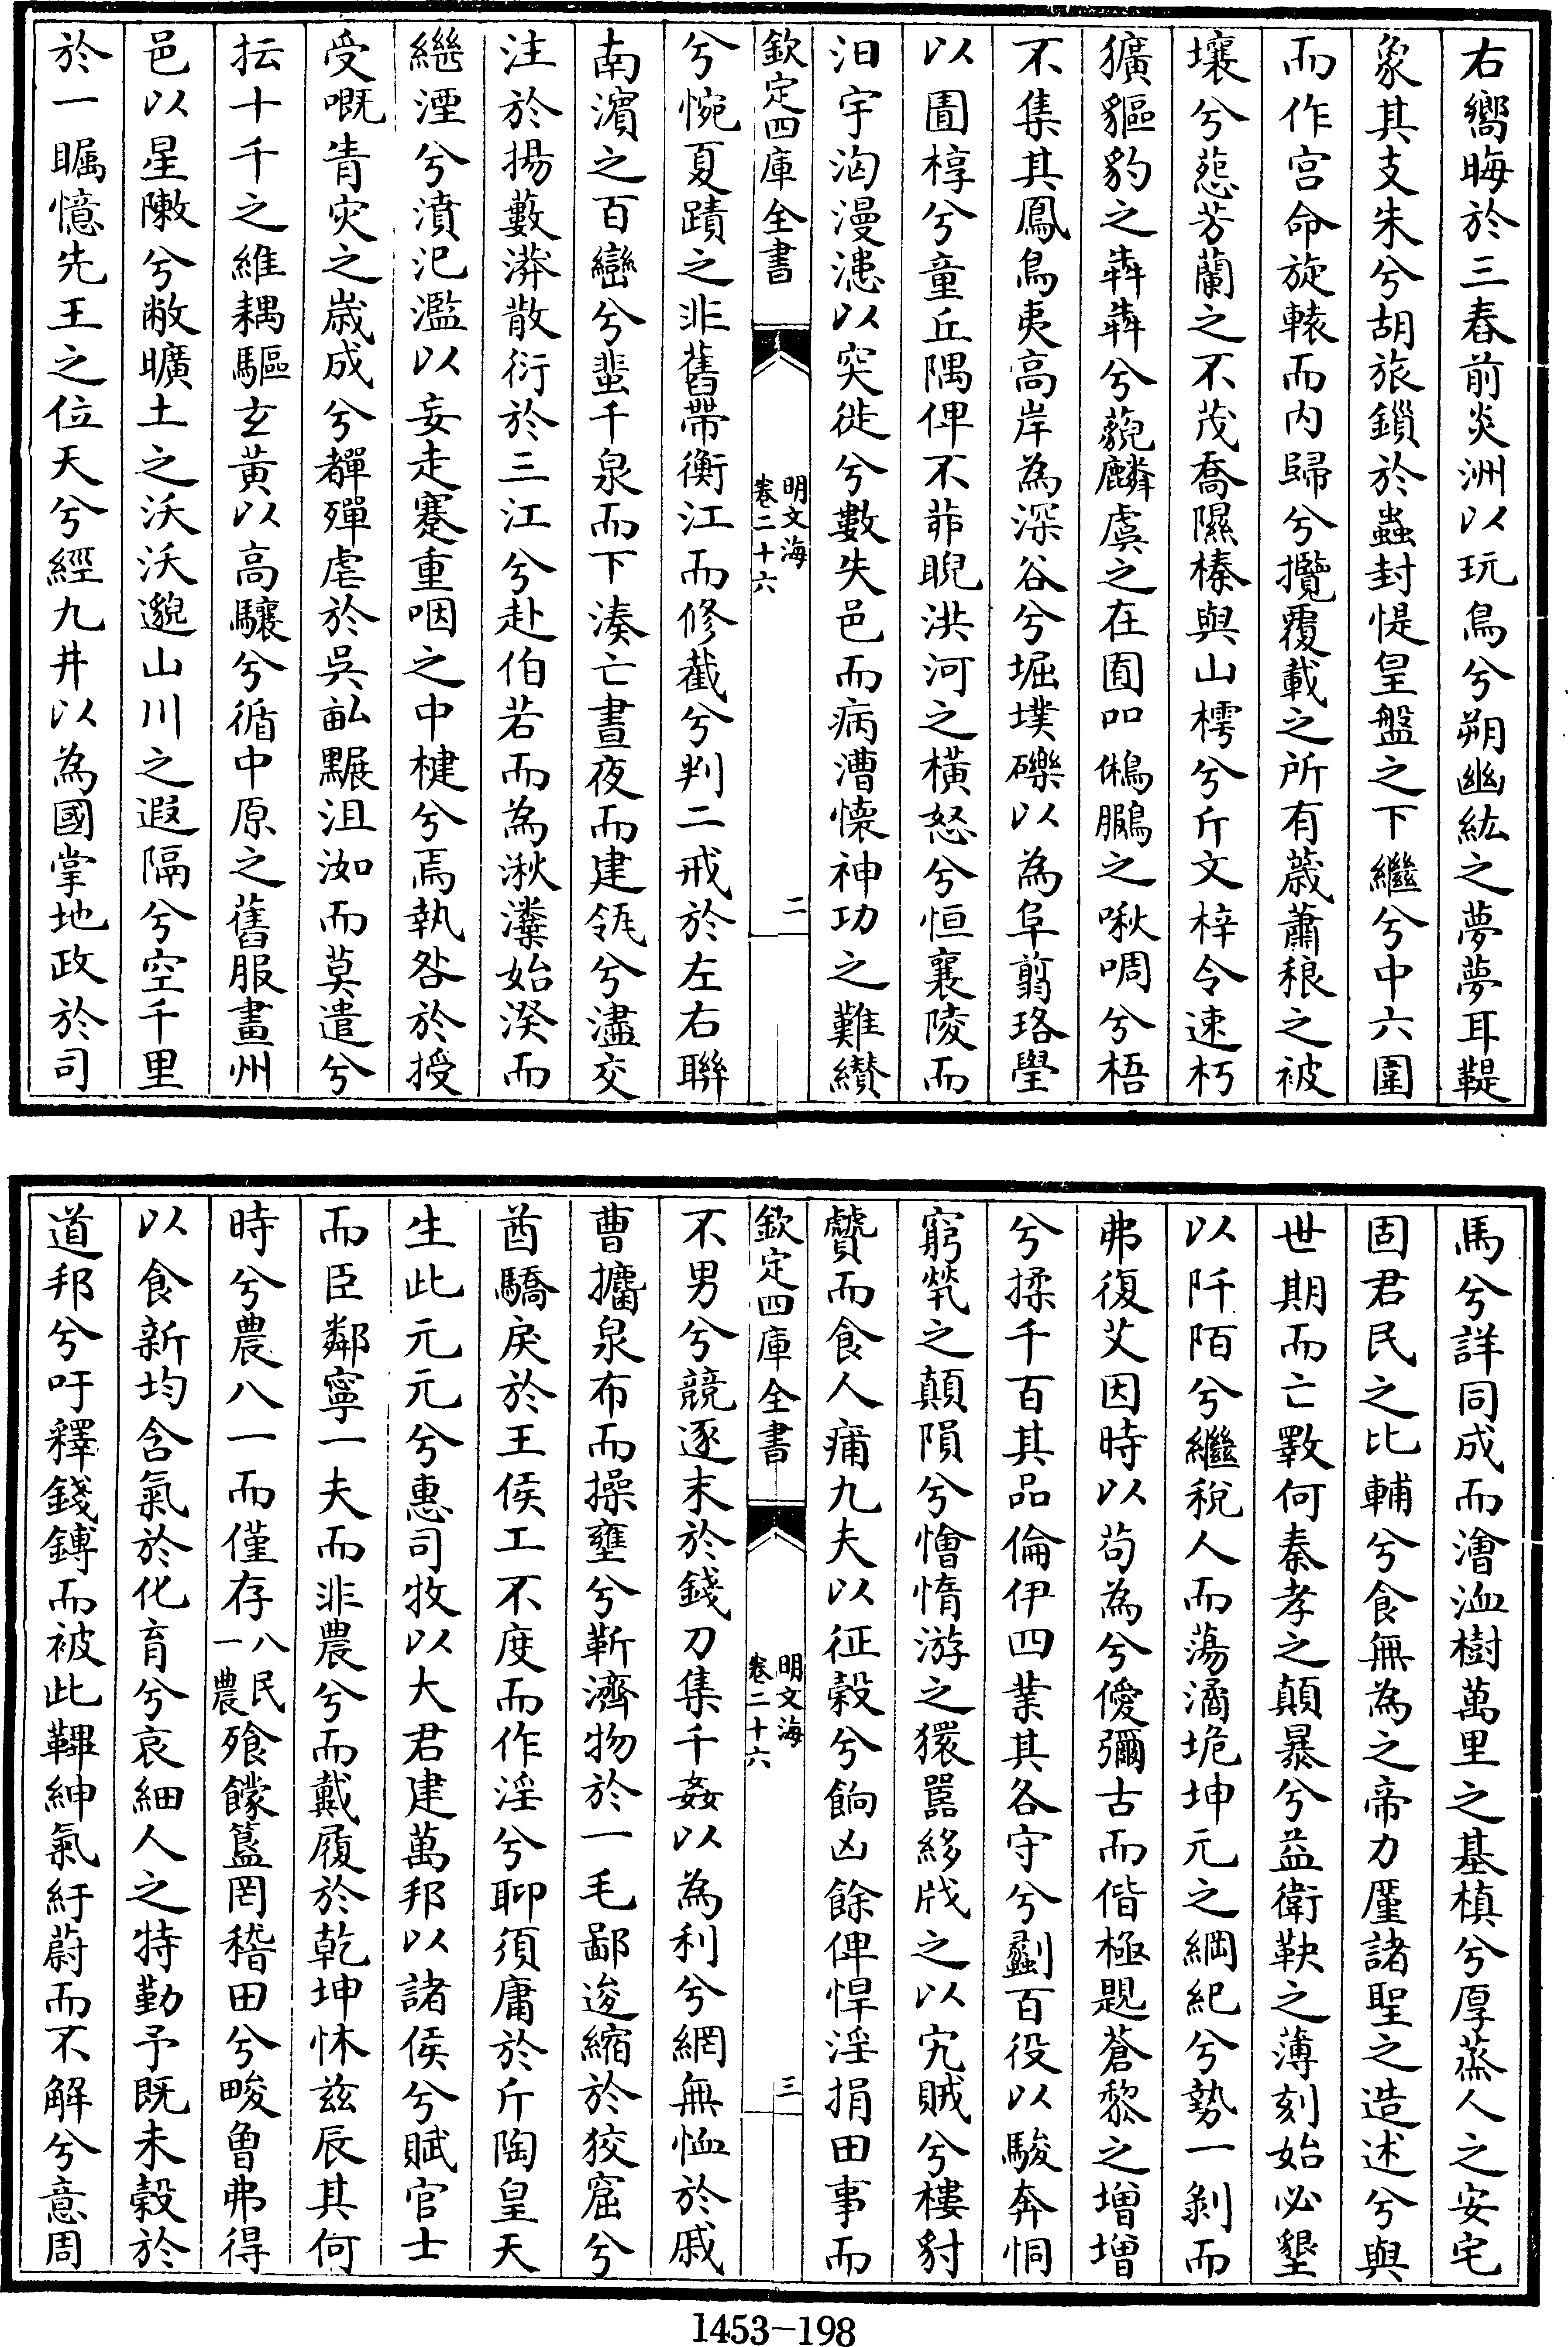 右嚮晦於三春前炎洲以玩鳥兮朔幽紘之夢夢耳鞮
象其支朱兮胡旅鎖於蟲封惿皇盤之下繼兮中六圍
而作宫命旋轅而内歸兮攬覆載之所有葴蕭稂之被
壤兮蒠芳蘭之不茂喬隰榛與山樗兮斤文梓令速朽
獷貙豹之犇犇兮藐麟虞之在囿吅鵂鶹之啾啁兮梧
不集其鳳鳥夷高岸為深谷兮堀墣礫以為阜翦珞壆
以圊椁兮童丘隅俾不菲睨洪河之横怒兮恒襄陵而
汩宇洶漫漶以突徙兮數失邑而病漕懷神功之難纉
欽定四庫全書 明文海 卷二十六 二
兮惋夏蹟之非舊帶衡江而修截兮判二戒於左右聯
南濵之百巒兮蜚千泉而下湊亡晝夜而建瓴兮濜交
注於揚藪漭散衍於三江兮赴伯若而為湫瀵始湀而
繼湮兮濆汜濫以妄走蹇重咽之中楗兮焉執咎於授
受嘅眚灾之歲成兮奲殫虐於吳畆黰沮洳而莫遣兮
抎十千之維耦驅玄黄以高驤兮循中原之舊服畫州
邑以星陳兮敝曠土之沃沃邈山川之遐隔兮空千里
於一矚憶先王之位天兮經九井以為國掌地政於司
馬兮詳同成而澮洫樹萬里之基槙兮厚蒸人之安宅
固君民之比輔兮食無為之帝力厪諸聖之造述兮與
世期而亡斁何秦孝之顛暴兮益衛鞅之薄刻始必墾
以阡陌兮繼稅人而蕩潏垝坤元之綱紀兮勢一剝而
弗復艾因時以苟為兮僾彌古而偕極覭蒼黎之增增
兮揉千百其品倫伊四業其各守兮劙百役以駿奔恫
窮煢之顛隕兮懀惰游之獧嚚絼戕之以宄賊兮㯫豺
贙而食人痡九夫以征榖兮餉凶餘俾悍淫捐田事而
欽定四庫全書 明文海 卷二十六 三
不男兮競逐末於錢刀集千姦以為利兮網無恤於戚
曹攟泉布而操壅兮靳濟物於一毛鄙逡縮於狡窟兮
酋驕戾於王侯工不度而作淫兮聊須庸於斤陶皇天
生此元元兮惠司牧以大君建萬邦以諸侯兮賦官士
而臣鄰寧一夫而非農兮而戴履於乾坤怵兹辰其何
時兮農八一而僅存八民一農飱饛簋罔稽田兮畯魯弗得
以食新均含氣於化育兮哀細人之特勤予既未榖於
道邦兮吁釋錢鎛而被此鞸紳氣紆蔚而不解兮意周
1453-198